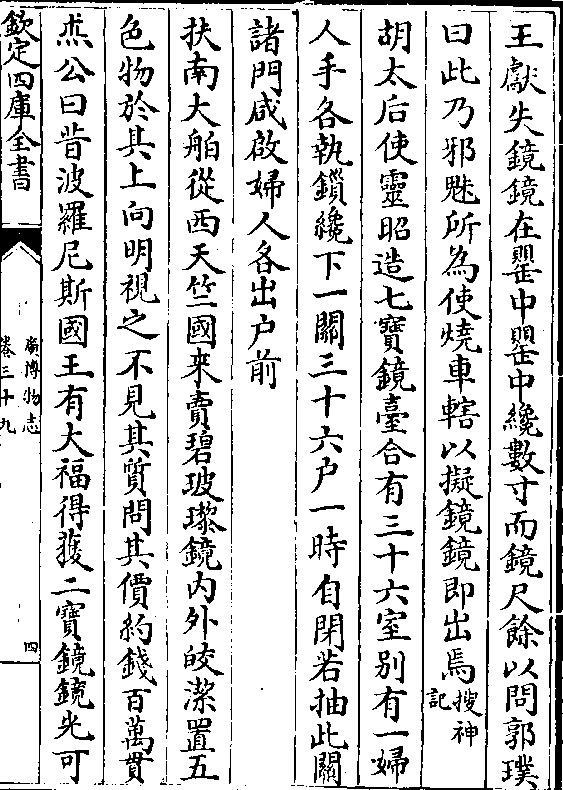 王獻失鏡鏡在罌中罌中纔數寸而鏡尺餘以問郭璞
曰此乃邪魅所為使燒車轄以擬鏡鏡即出焉搜神記
胡太后使靈昭造七寶鏡臺合有三十六室别有一婦
人手各執鎻纔下一關三十六户一時自閉若抽此關
諸門咸啟婦人各出户前
扶南大舶從西天竺國来賣碧玻瓈鏡内外皎潔置五
色物於其上向明視之不見其質問其價約錢百萬貫
焣公曰昔波羅尼斯國王有大福得獲二寶鏡鏡光可
欽定四庫全書
廣博物志
卷三十九
四